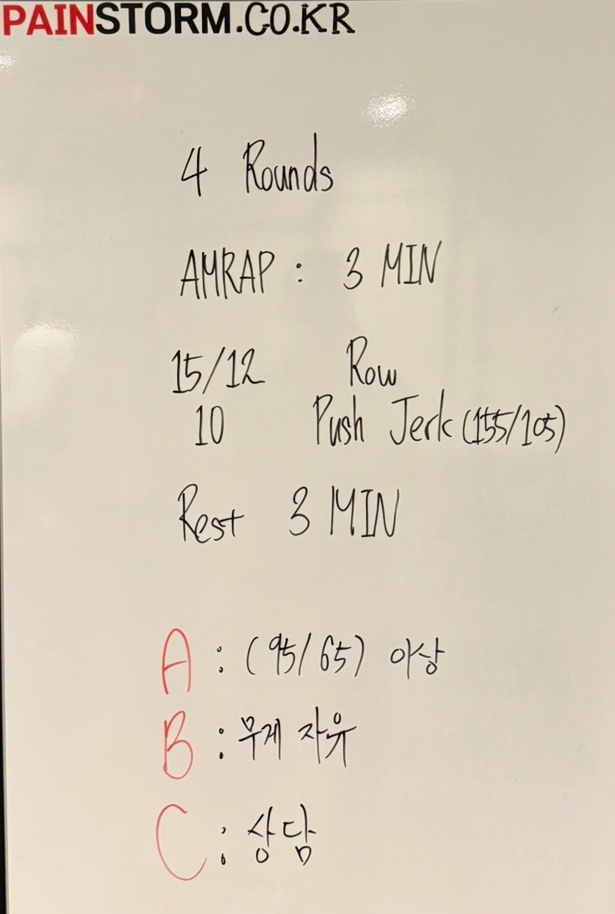 PAINSTORM.CO.KR
4 Rounds
AMRAP : 3 MIN
15/12 Row
10 Push Jerk (155/105)
Rest 3 MIN
A : (95/65) 이상
B : 무게 자유
C : 상담